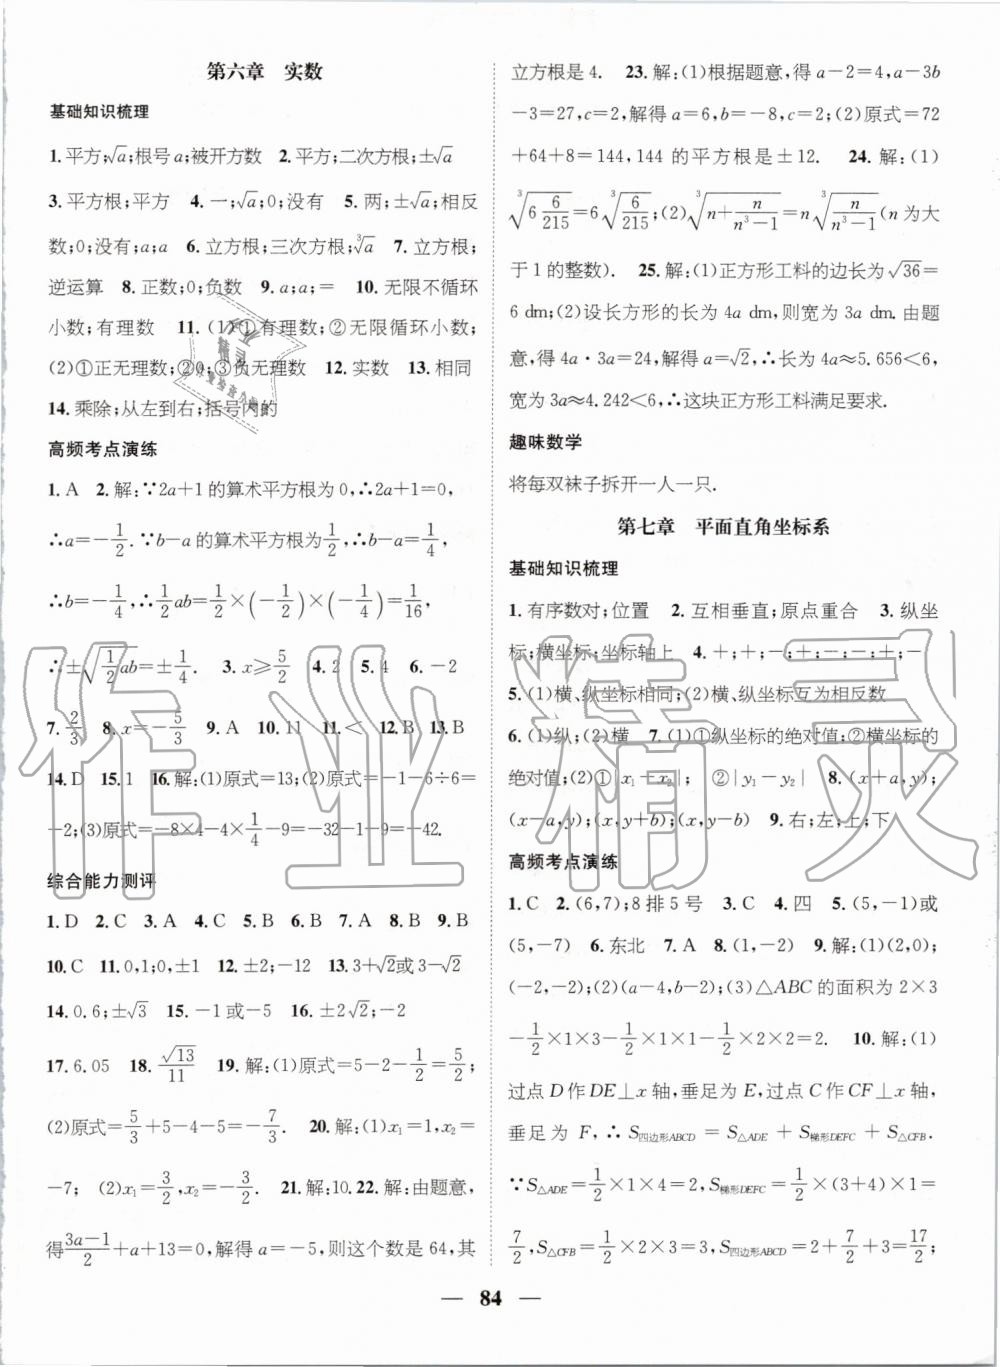 第六章 实数
基础知识梳理
1.平方;√a;根号a;被开方数 2.平方;二次方根;±√a
3.平方根;平方 4.一;√a;0;没有 5.两;±√a;相反
数;0;没有;a;a 6.立方根;三次方根;∛a 7.立方根;
逆运算 8.正数;0;负数 9.a;a;= 10.无限不循环
小数;有理数 11.(1)①有理数;②无限循环小数;
(2)①正无理数;②0;③负无理数 12.实数 13.相同
14.乘除;从左到右;括号内的
高频考点演练
1.A 2.解:∵2a+1的算术平方根为0,∴2a+1=0,
∴a=-1/2.∵b-a的算术平方根为1/2,∴b-a=1/4,
∴b=-1/4,∴1/2ab=1/2×(-1/2)×(-1/4)=1/16,
∴±√(1/2ab)=±1/4. 3.x≥5/2 4.2 5.4 6.-2
7.2/3 8.x=-5/3 9.A 10.11 11.< 12.B 13.B
14.D 15.1 16.解:(1)原式=13;(2)原式=-1-6÷6=
-2;(3)原式=-8×4-4×1/4-9=-32-1-9=-42.
综合能力测评
1.D 2.C 3.A 4.C 5.B 6.B 7.A 8.B 9.B
10.C 11.0,1;0,±1 12.±2;-12 13.3+√2或3-√2
14.0.6;±√3 15.-1或-5 16.±2;-2
17.6.05 18.√13/11 19.解:(1)原式=5-2-1/2=5/2;
(2)原式=5/3+5-4-5=-7/3. 20.解:(1)x₁=1,x₂=
-7; (2)x₁=3/2,x₂=-3/2. 21.解:10. 22.解:由题意,
得(3a-1)/2+a+13=0,解得a=-5,则这个数是64,其
立方根是4. 23.解:(1)根据题意,得a-2=4,a-3b
-3=27,c=2,解得a=6,b=-8,c=2;(2)原式=72
+64+8=144,144的平方根是±12. 24.解:(1)
∛(6 6/215)=6∛(6/215);(2)∛(n+n/(n³-1))=n∛(n/(n³-1))(n为大
于1的整数). 25.解:(1)正方形工料的边长为√36=
6 dm;(2)设长方形的长为4a dm,则宽为3a dm.由题
意,得4a·3a=24,解得a=√2,∴长为4a≈5.656<6,
宽为3a≈4.242<6,∴这块正方形工料满足要求.
趣味数学
将每双袜子拆开一人一只.
第七章 平面直角坐标系
基础知识梳理
1.有序数对;位置 2.互相垂直;原点重合 3.纵坐
标;横坐标;坐标轴上 4.+;+;-;+;-;-;+;-
5.(1)横、纵坐标相同;(2)横、纵坐标互为相反数
6.(1)纵;(2)横 7.(1)①纵坐标的绝对值;②横坐标的
绝对值;(2)①|x₁-x₂|; ②|y₁-y₂| 8.(x+a,y);
(x-a,y);(x,y+b);(x,y-b) 9.右;左;上;下
高频考点演练
1.C 2.(6,7);8排5号 3.C 4.四 5.(5,-1)或
(5,-7) 6.东北 7.A 8.(1,-2) 9.解:(1)(2,0);
(-2,-2);(2)(a-4,b-2);(3)△ABC的面积为2×3
-1/2×1×3-1/2×1×1-1/2×2×2=2. 10.解:(1)
过点D作DE⊥x轴,垂足为E,过点C作CF⊥x轴,
垂足为F,∴S四边形ABCD=S△ADE+S梯形DEFC+S△CFB.
∵S△ADE=1/2×1×4=2,S梯形DEFC=1/2×(3+4)×1=
7/2,S△CFB=1/2×2×3=3,S四边形ABCD=2+7/2+3=17/2;
— 84 —
作业精灵